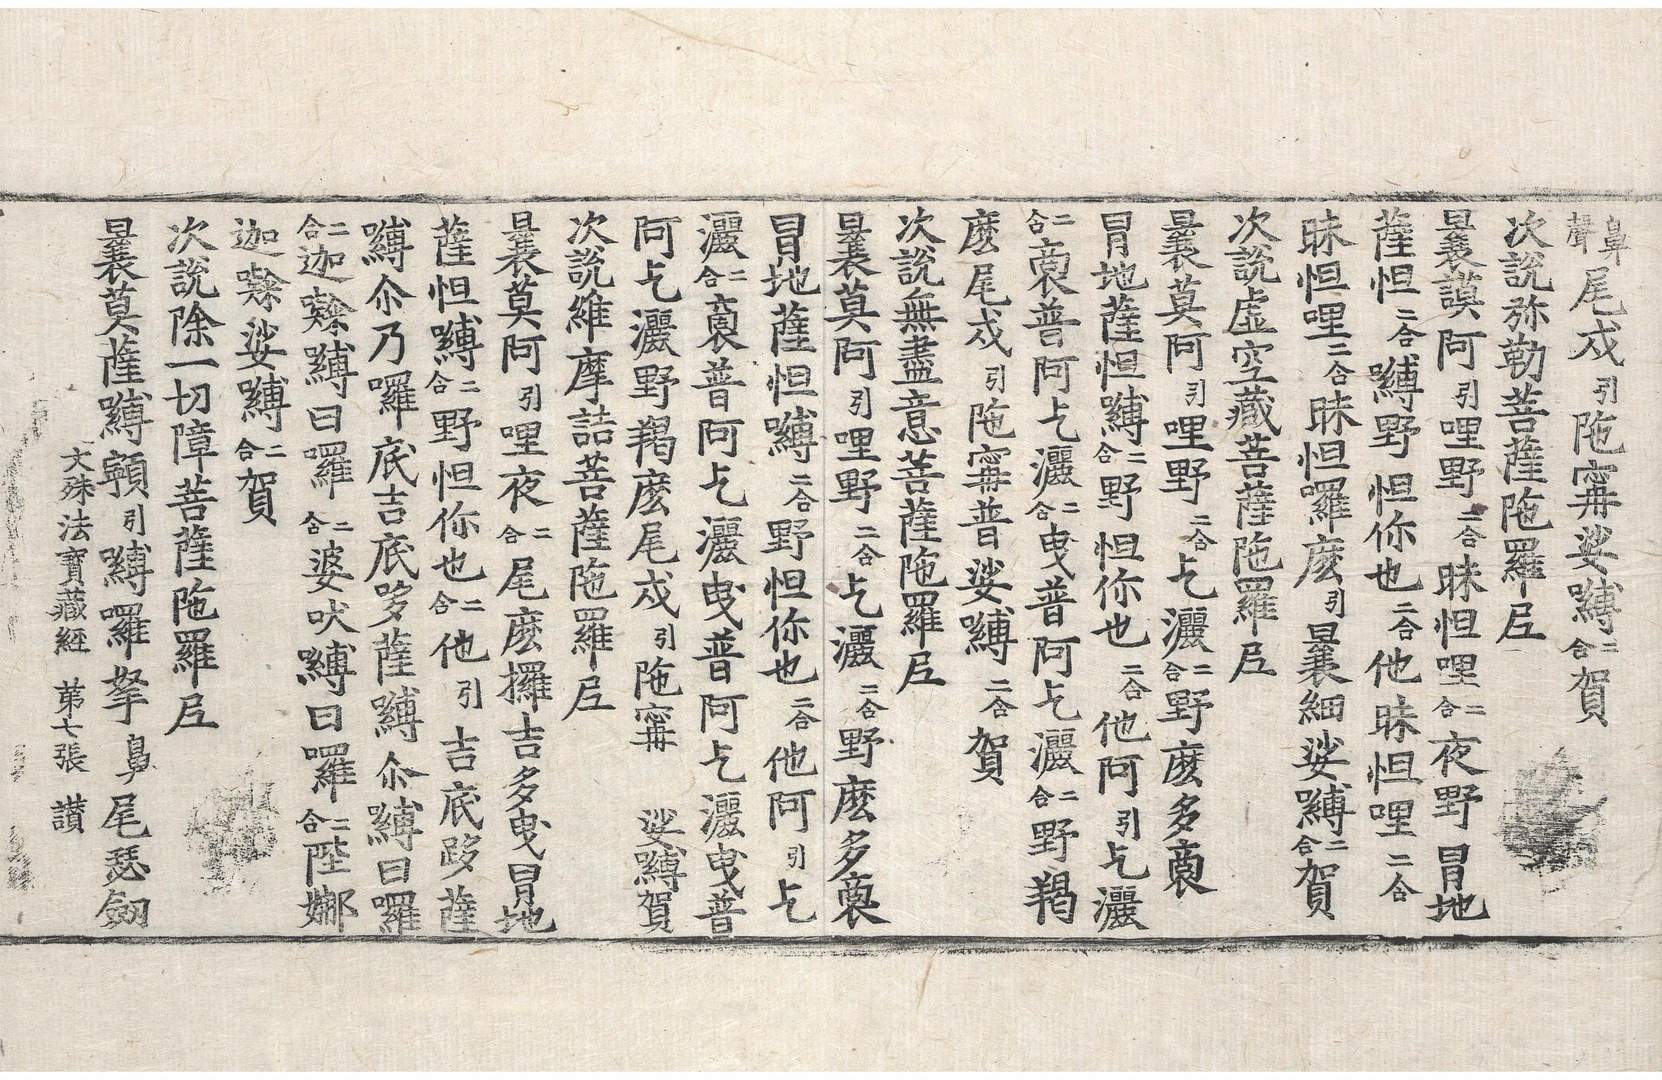 鼻聲尾戍引陁寗娑嚩二合賀
次說弥勒菩薩陁羅𡰱
曩謨阿引哩野二合昧怛哩二合夜野冒地
薩怛二合嚩野怛你也二合他昧怛哩二合
昧怛哩二合昧怛囉麽引曩細娑嚩二合賀
次說虛空藏菩薩陁羅𡰱
曩莫阿引哩野二合乞灑二合野麽多裔
冒地薩怛嚩二合野怛你也二合他阿引乞灑
二合裔普阿乞灑二合曳普阿乞灑二合野羯
麽尾戍引陁寗普娑嚩二合賀
次說無盡意菩薩陁羅𡰱
曩莫阿引哩野二合乞灑二合野麽多裔
冒地薩怛嚩二合野怛你也二合他阿引乞
灑二合裔普阿乞灑曳普阿乞灑曳普
阿乞灑野羯麽尾戍引陁寗 娑嚩賀
次說維摩詰菩薩陁羅𡰱
曩莫阿引哩夜二合尾麽攞吉多曳冒地
薩怛嚩二合野怛你也二合他引吉底哆薩
嚩尒乃囉底吉底哆薩嚩尒嚩日囉
二合迦嚩日囉二合婆吠嚩日囉二合陛娜
迦娑嚩二合賀
次說除一切障菩薩陁羅𡰱
曩莫薩嚩引嚩囉拏鼻尾瑟劒
文殊法寶藏經 第七張 讃